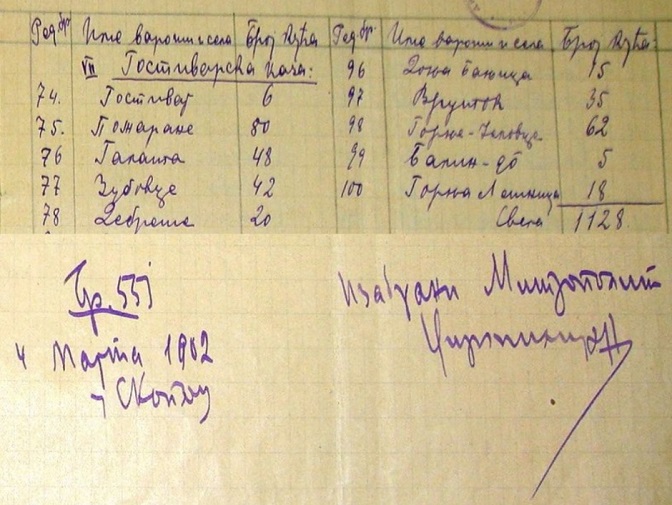 Ред. бр. Име вароши и села Број кућа Ред. бр. Име вароши и села Број кућа:
VII Гостиварска каза: 96 Доња Бањица 15
74. Гостивар 6 97 Вруток 35
75. Пожаране 80 98 Горње-Јеловце 62
76 Галаша 48 99 Балин-до 5
77 Зубовце 42 100 Горња Лешница 18
78 Дебреше 20 Свега 1128
Бр. 551
4 марта 1902
у Скопљу
Изабрани Митрополит
Фирмилијан